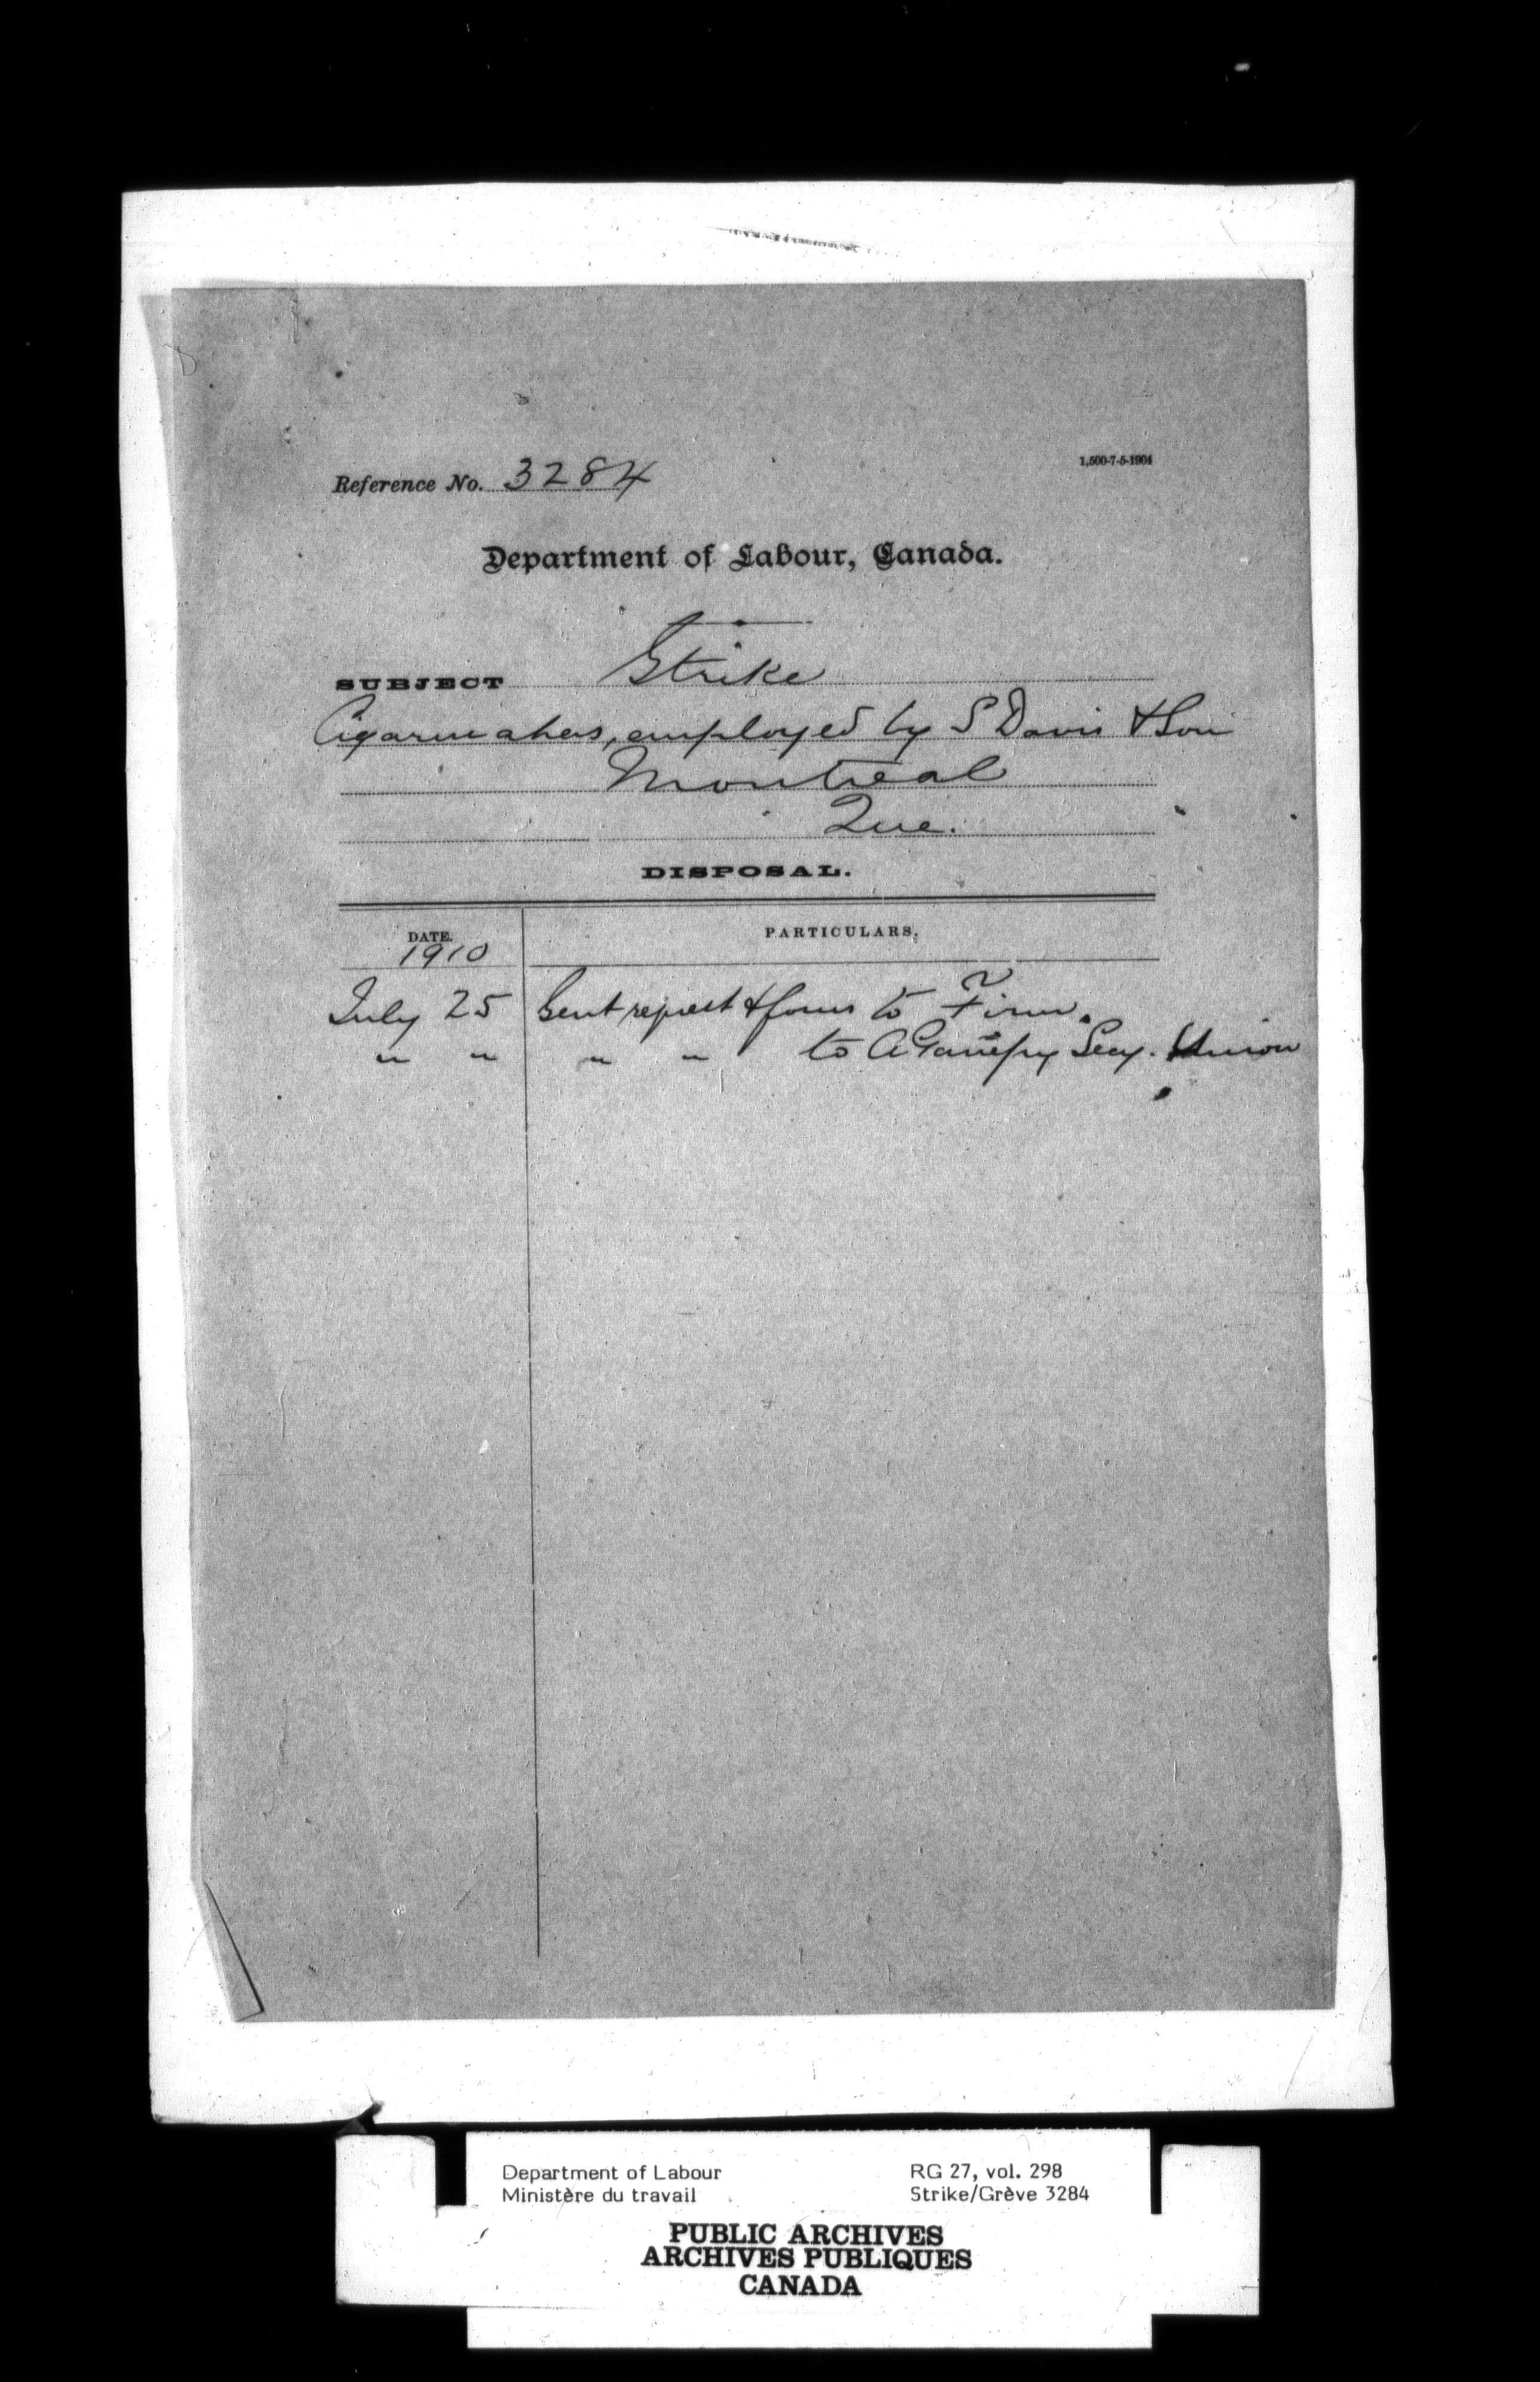 Reference No. 3284
1,500-7-5-1904
Department of Labour, Canada.
SUBJECT Strike
Cigarmakers, employed by S Davis & Son
Montreal
Que.
DISPOSAL.
DATE. PARTICULARS.
1910
July 25 Sent request & forms to Firm.
" " " " to A Secy. Union
Department of Labour RG 27, vol. 298
Ministère du travail Strike/Grève 3284
PUBLIC ARCHIVES
ARCHIVES PUBLIQUES
CANADA